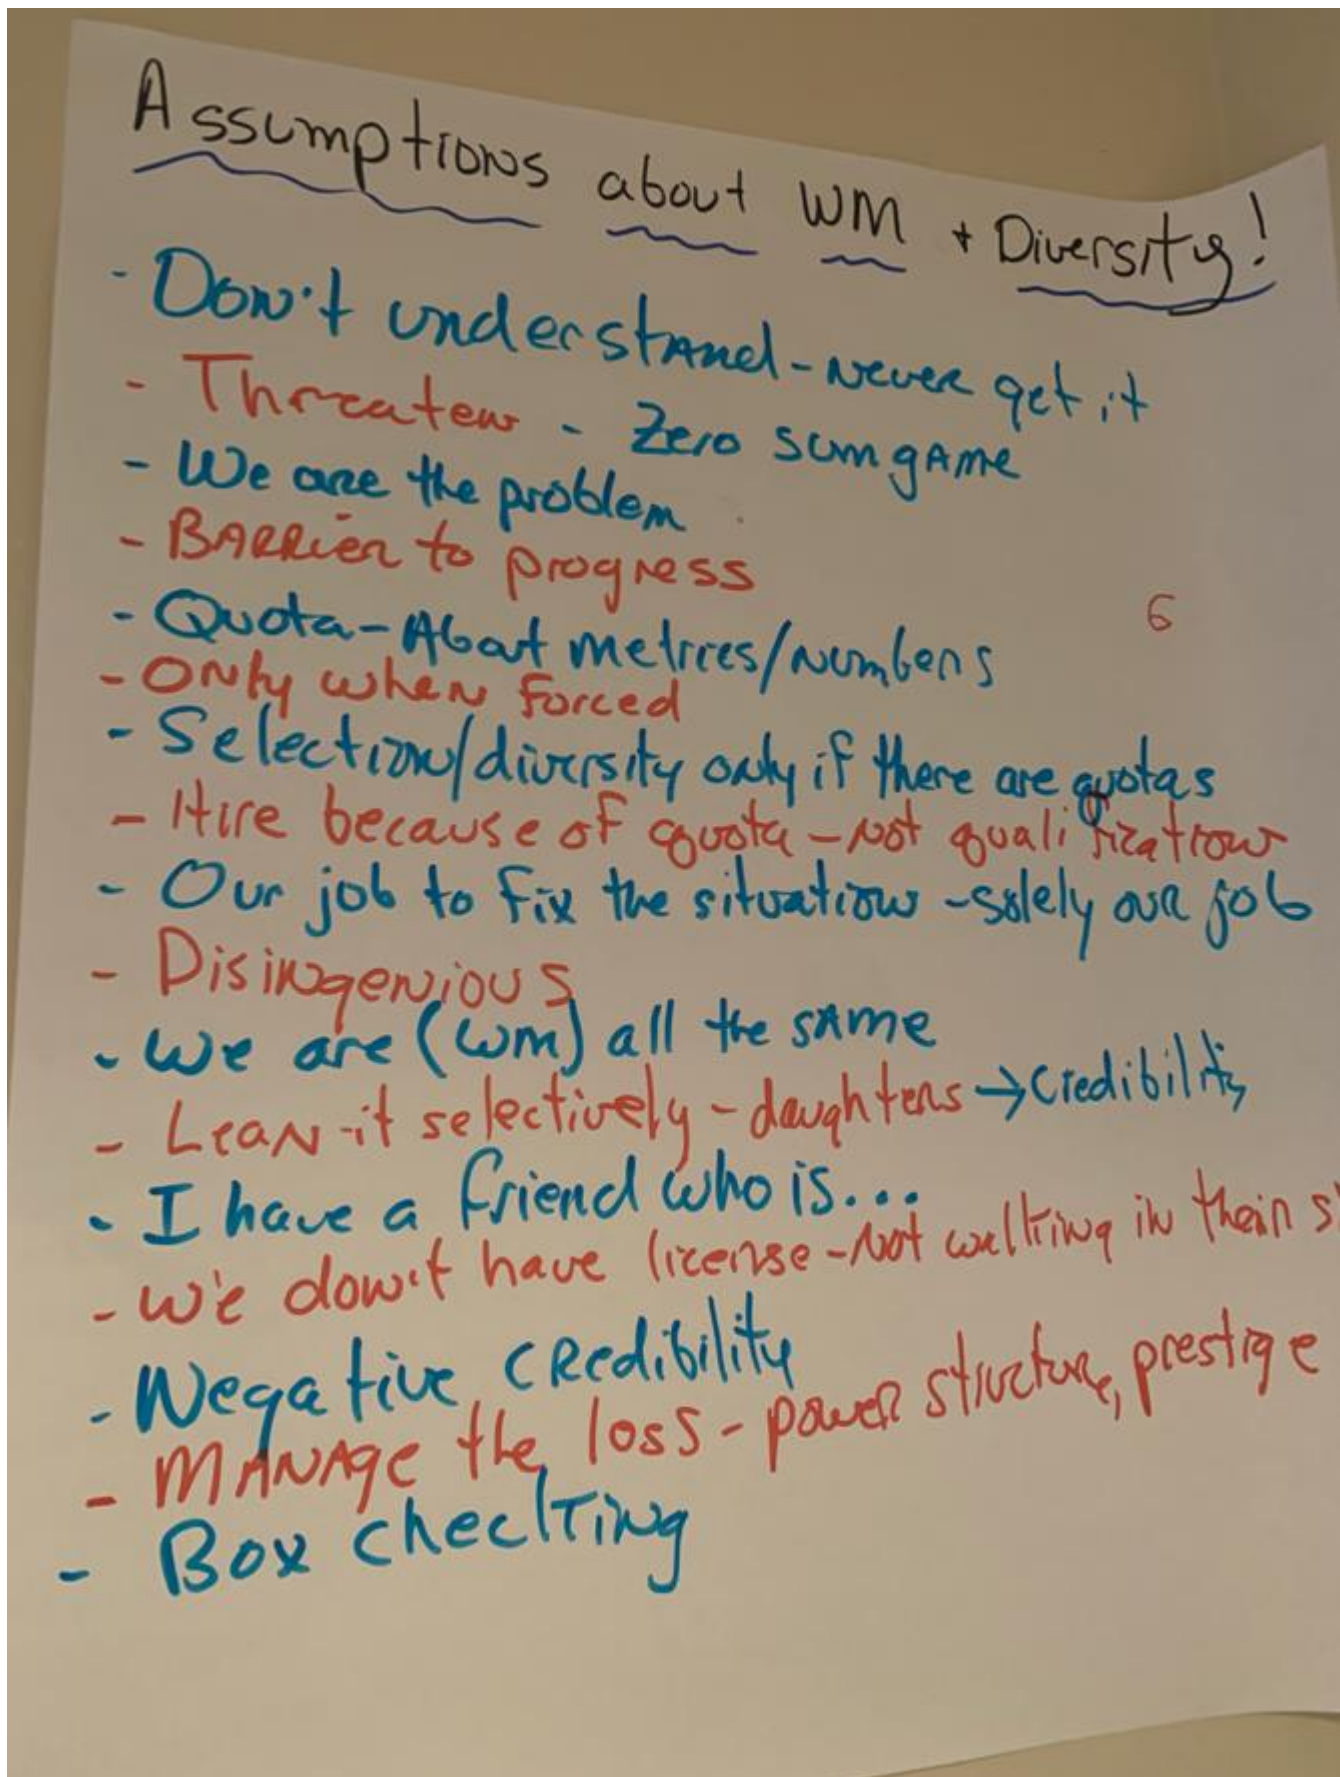 Assumptions about WM + Diversity!
- Don't understand - never get it
- Threaten - Zero sum game
- We are the problem
- Barrier to progress
6
- Quota - About metrics/numbers
- Only when forced
- Selection/diversity only if there are quotas
- Hire because of quota - not qualification
- Our job to fix the situation - solely our job
- Disingenious
- We are (WM) all the same
- Lean it selectively - daughters → credibility
- I have a friend who is...
- We don't have license - Not walking in their
- Negative credibility
- Manage the loss - power structure, prestige
- Box checking